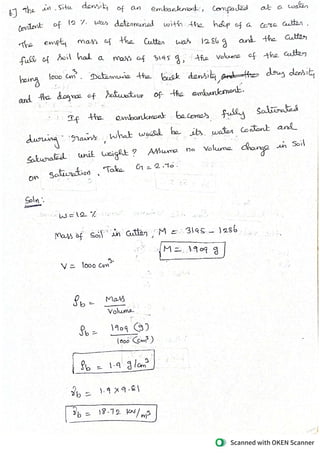 8] The in-situ density of an embankment, compacted at a water
content of 12 % was determined with the help of a core cutter.
The empty mass of the cutter was 1286 g and the cutter
full of soil had a mass of 3195 g, the volume of the cutter
being 1000 cm³. Determine the bulk density, dry density
and the degree of saturation of the embankment.
If the embankment becomes fully saturated
during rains, what would be its water content and
saturated unit weight? Assume no volume change in soil
on saturation. Take G = 2.70.
Soln:
w = 12 %
Mass of soil in cutter, M = 3195 - 1286
M = 1909 g
V = 1000 cm³
ρb = Mass
Volume
ρb = 1909 (g)
1000 (cm³)
ρb = 1.9 g/cm³
γb = 1.9 × 9.81
γb = 18.72 kN/m³
Scanned with OKEN Scanner